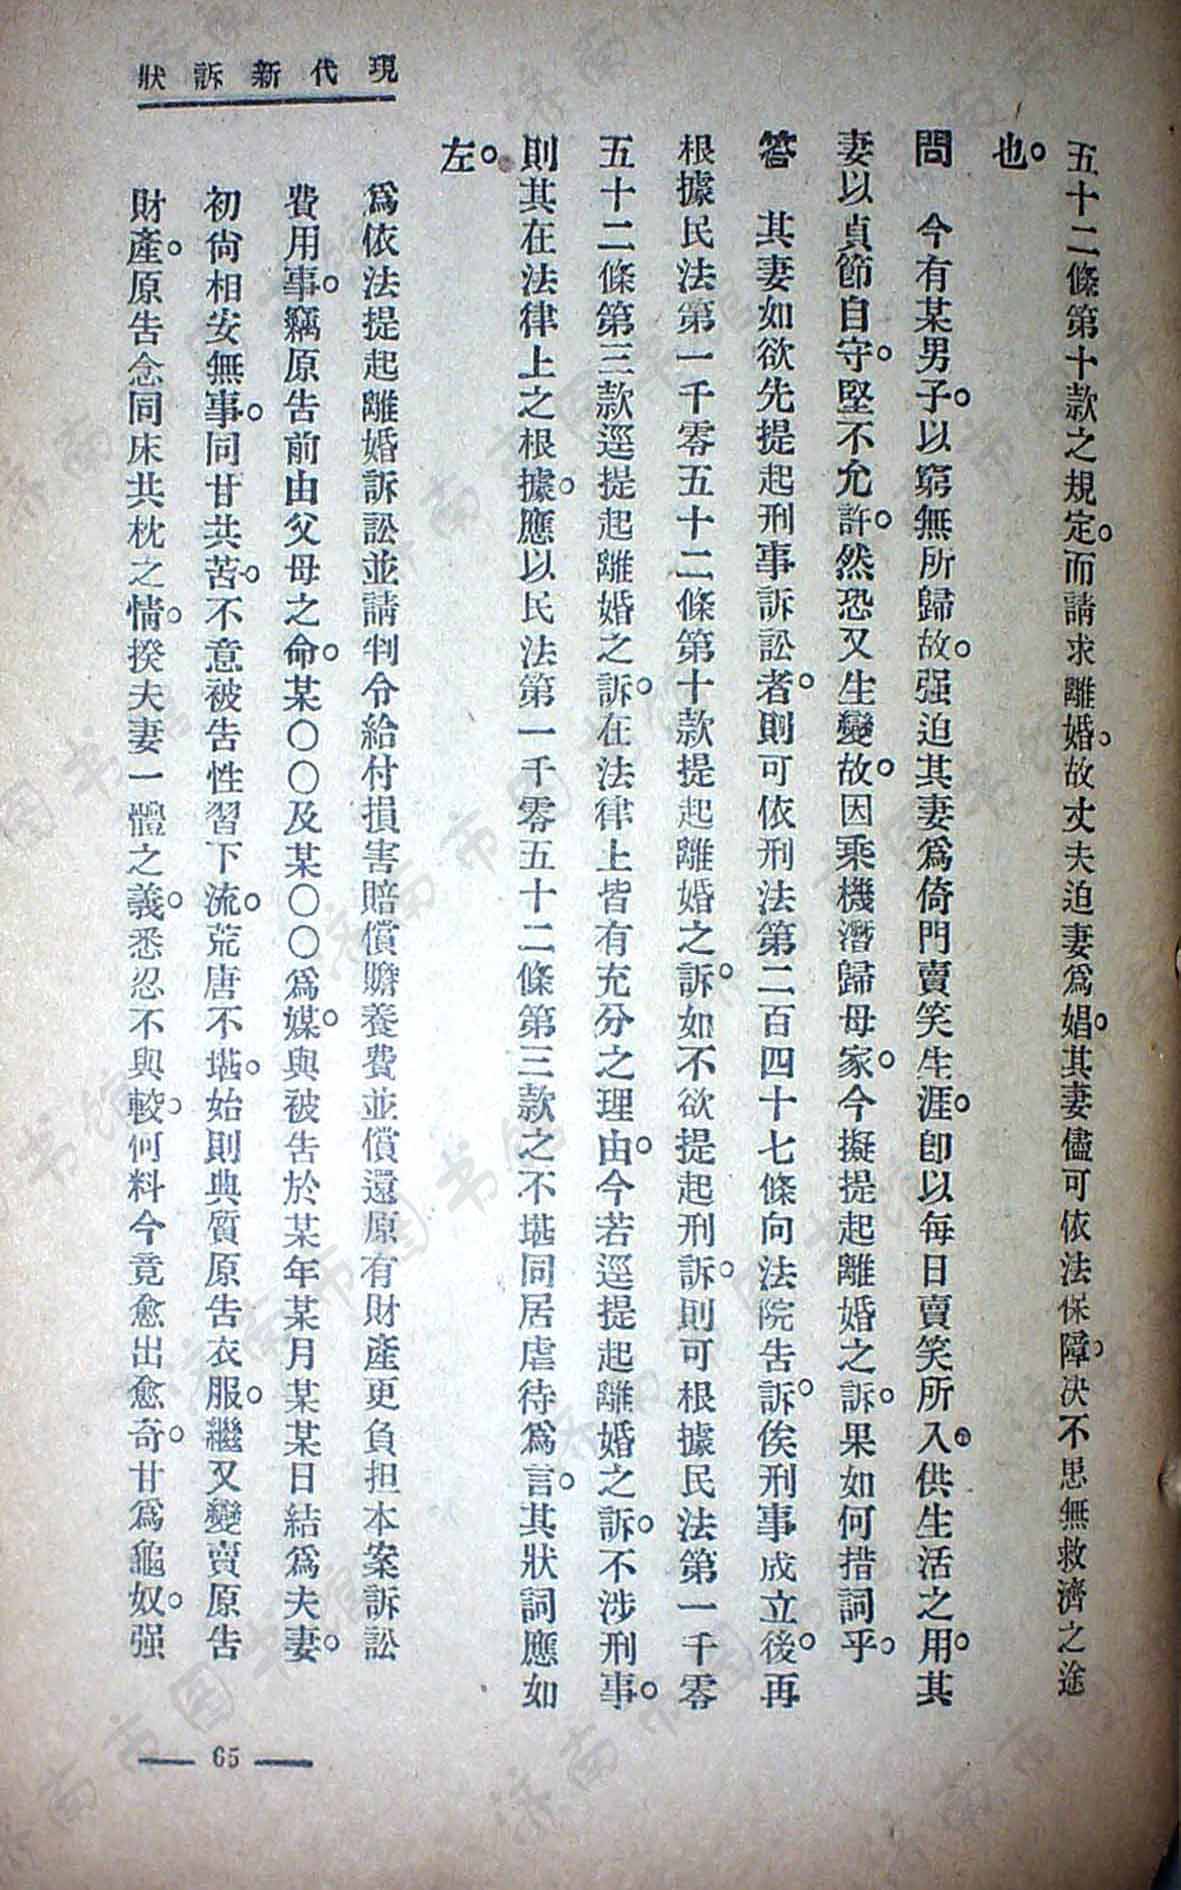 現代新訴狀
五十二條第十款之規定。而請求離婚。故丈夫迫妻爲娼。其妻儘可依法保障。决不思無救濟之途
也。
問　今有某男子。以窮無所歸故。强迫其妻爲倚門賣笑生涯。卽以每日賣笑所入。供生活之用。其
妻以貞節自守。堅不允許。然恐又生變。故因乘機潛歸母家。今擬提起離婚之訴。果如何措詞乎。
答　其妻如欲先提起刑事訴訟者。則可依刑法第二百四十七條向法院告訴。俟刑事成立後。再
根據民法第一千零五十二條第十款提起離婚之訴。如不欲提起刑訴。則可根據民法第一千零
五十二條第三款逕提起離婚之訴。在法律上皆有充分之理由。今若逕提起離婚之訴。不涉刑事。
則其在法律上之根據。應以民法第一千零五十二條第三款之不堪同居虐待爲言。其狀詞應如
左。
爲依法提起離婚訴訟並請判令給付損害賠償贍養費並償還原有財產更負担本案訴訟
費用事。竊原告前由父母之命。某〇〇及某〇〇爲媒。與被告於某年某月某某日結爲夫妻。
初尙相安無事。同甘共苦。不意被告性習下流。荒唐不堪。始則典質原告衣服。繼又變賣原告
財產。原告念同床共枕之情。揆夫妻一體之義。悉忍不與較。何料今竟愈出愈奇。甘爲龜奴。强
65
济南市图书馆